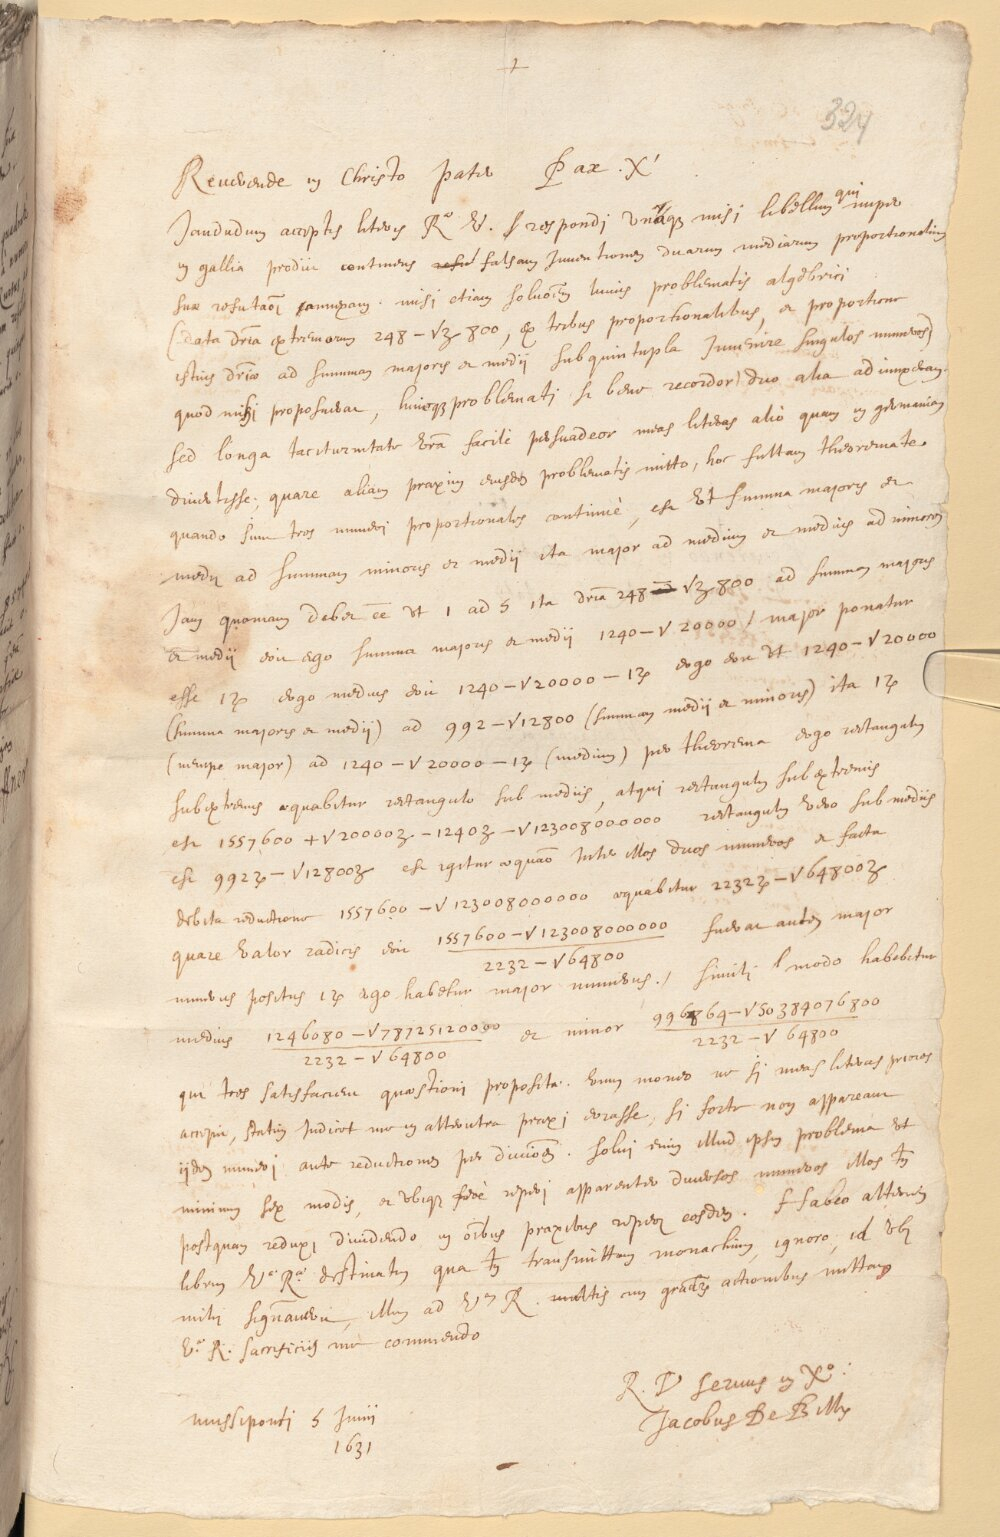 +
324
Reverende in Christo Pater Pax Xi
Jamdudum acceptis literis Rae V. respondi unaque misi libellum qui nuper
in gallia prodiit continens falsam Inventionem duarum mediarum proportionalium
suae refutaōi annexam. misi etiam soluōem huius problematis algebrici
(data dr̄ia extremorum 248 – √ʒ 800, ex tribus proportionalibus, et proportione
istius dr̄iae ad summam majoris et medij subquintupla Invenire singulos numeros)
quod mihi proposuerat, huicque problemati si bene recordor duo alia adiunxeram.
sed longa taciturnitate vr̄a facile persuadeor meas literas aliò quam in germaniam
divertisse; quare aliam praxim eiusdem problematis mitto, hoc fultam theoremate.
quando sunt tres numeri proportionales continuè, est ut summa majoris et
medij ad summam minoris et medij ita major ad medium et medius ad minorem
Jam quoniam debet ēe ut 1 ad 5 ita dr̄ia 248 – √ʒ 800 ad summam majoris
et medij erit ergo summa majoris et medij 1240 – √ 20000 / major ponatur
esse 1ʒe ergo medius erit 1240 – √20000 – 1ʒe ergo erit ut 1240 – √20000
(summa majoris et medij) ad 992 – √12800 (summam medij et minoris) ita 1ʒe
(nempe major) ad 1240 – √20000 – 1ʒe (medium) per theorema ergo rectangulum
sub extremis aequabitur rectangulo sub medijs, atqui rectangulum sub extremis
est 1557600 + √20000ʒ – 1240ʒe – √123008000000 rectangulum vero sub medijs
est 992ʒe – √12800ʒ est igitur aequāo Inter illos duos numeros et facta
debita reductione 1557600 – √123008000000 aequabitur 2232ʒe – √64800ʒ
quare valor radicis erit 1557600 – √123008000000 / 2232 – √64800 fuerat autem major
numerus positus 1ʒe ergo habetur major numerus. / simili modo habebitur
medius 1246080 – √78725120000 / 2232 – √64800 et minor 996864 – √50384076800 / 2232 – √64800
qui tres satisfaciunt quaestioni propositae. Unum moneo ne si meas literas priores
accepit, statim Iudicet me in alterutra praxi errasse, si forte non appareant
ijdem numeri ante reductionem per diviōem. solvi enim illud ipsum problema ut
minimum sex modis, et ubique ferè reperi apparenter diversos numeros illos tn̄
postquam reduxi dividendo in ōibus praxibus reperi eosdem. Habeo alterum
librum Vae Rae destinatum qua tn̄ transmittam monachium, ignoro, id ubi
mihi signaverit, illum ad Vam R. multis cum gr̄arum actionibus mittam
Vae R. sacrificijs me commendo
R. V servus in Xo.
Mussiponti 5 Junij Jacobus De Billy
1631